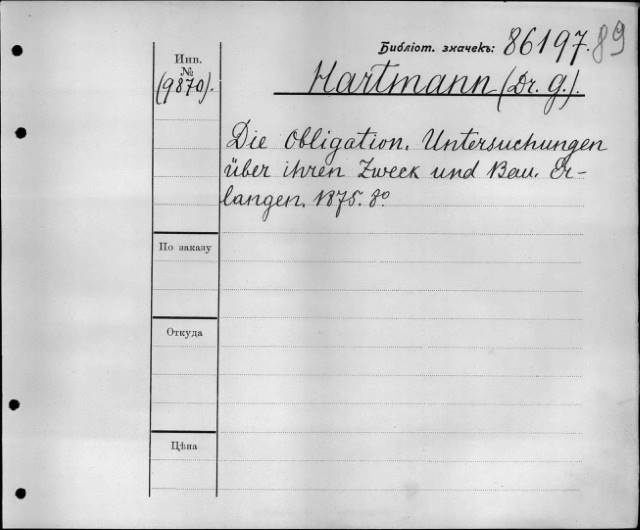 Библіот. значекъ: 86197. 89
Инв.
№
(9870).
Hartmann (Dr. G.).
Die Obligation. Untersuchungen
über ihren Zweck und Bau. Er-
langen. 1875. 8º
По заказу
Откуда
Цѣна